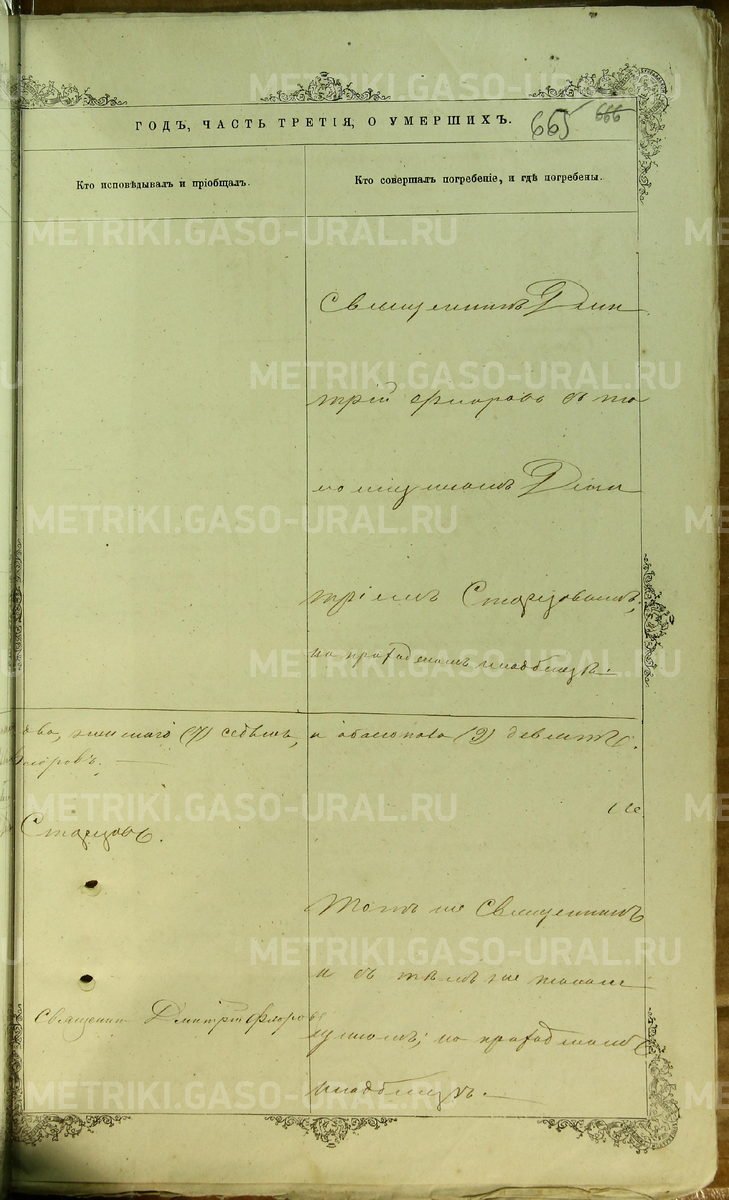 ГОДЪ, ЧАСТЬ ТРЕТІЯ, О УМЕРШИХЪ.
665 666
Кто исповѣдывалъ и пріобщалъ.
Кто совершалъ погребеніе, и гдѣ погребены.
Священникъ Дми
трій Флоровъ съ по
номаремъ Дми
тріемъ Старцовымъ,
на приходскомъ кладбищѣ.
два, женскаго (7) седьмъ, и обоего пола (9) девять.
Флоровъ.
Старцовъ.
Тотъ же Священникъ
и съ тѣмъ же поно
маремъ, на приходскомъ
кладбищѣ.
Священникъ Дмитрій Флоровъ
METRIKI.GASO-URAL.RU